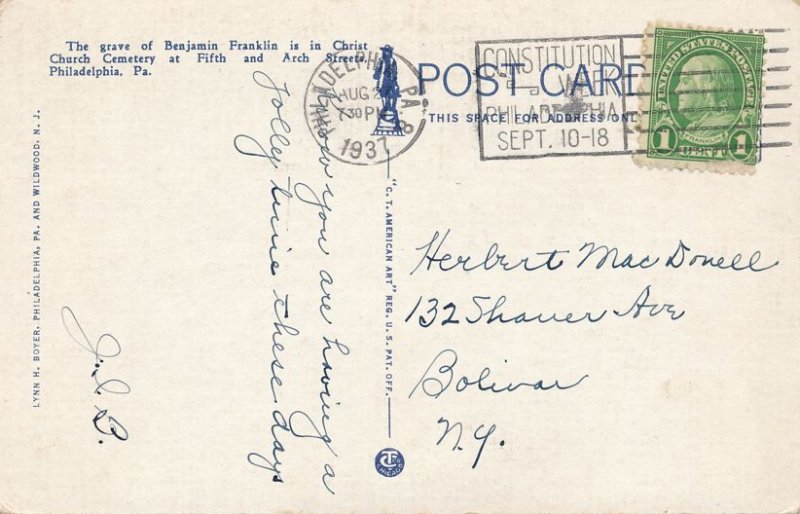 The grave of Benjamin Franklin is in Christ
Church Cemetery at Fifth and Arch Streets,
Philadelphia, Pa.
POST CARD
THIS SPACE FOR ADDRESS ONLY
PHILADELPHIA PA.
AUG 2
730 PM
1937
CONSTITUTION
PHILADELPHIA
SEPT. 10-18
UNITED STATES POSTAGE
FRANKLIN
1 CENT 1
LYNN H. BOYER, PHILADELPHIA, PA. AND WILDWOOD, N. J.
"C. T. AMERICAN ART" REG. U. S. PAT. OFF.
CT
CHICAGO
you are having a
Jolly time these days
J. S. B.
Herbert MacDonell
132 Shaner Ave
Bolivar
N.Y.